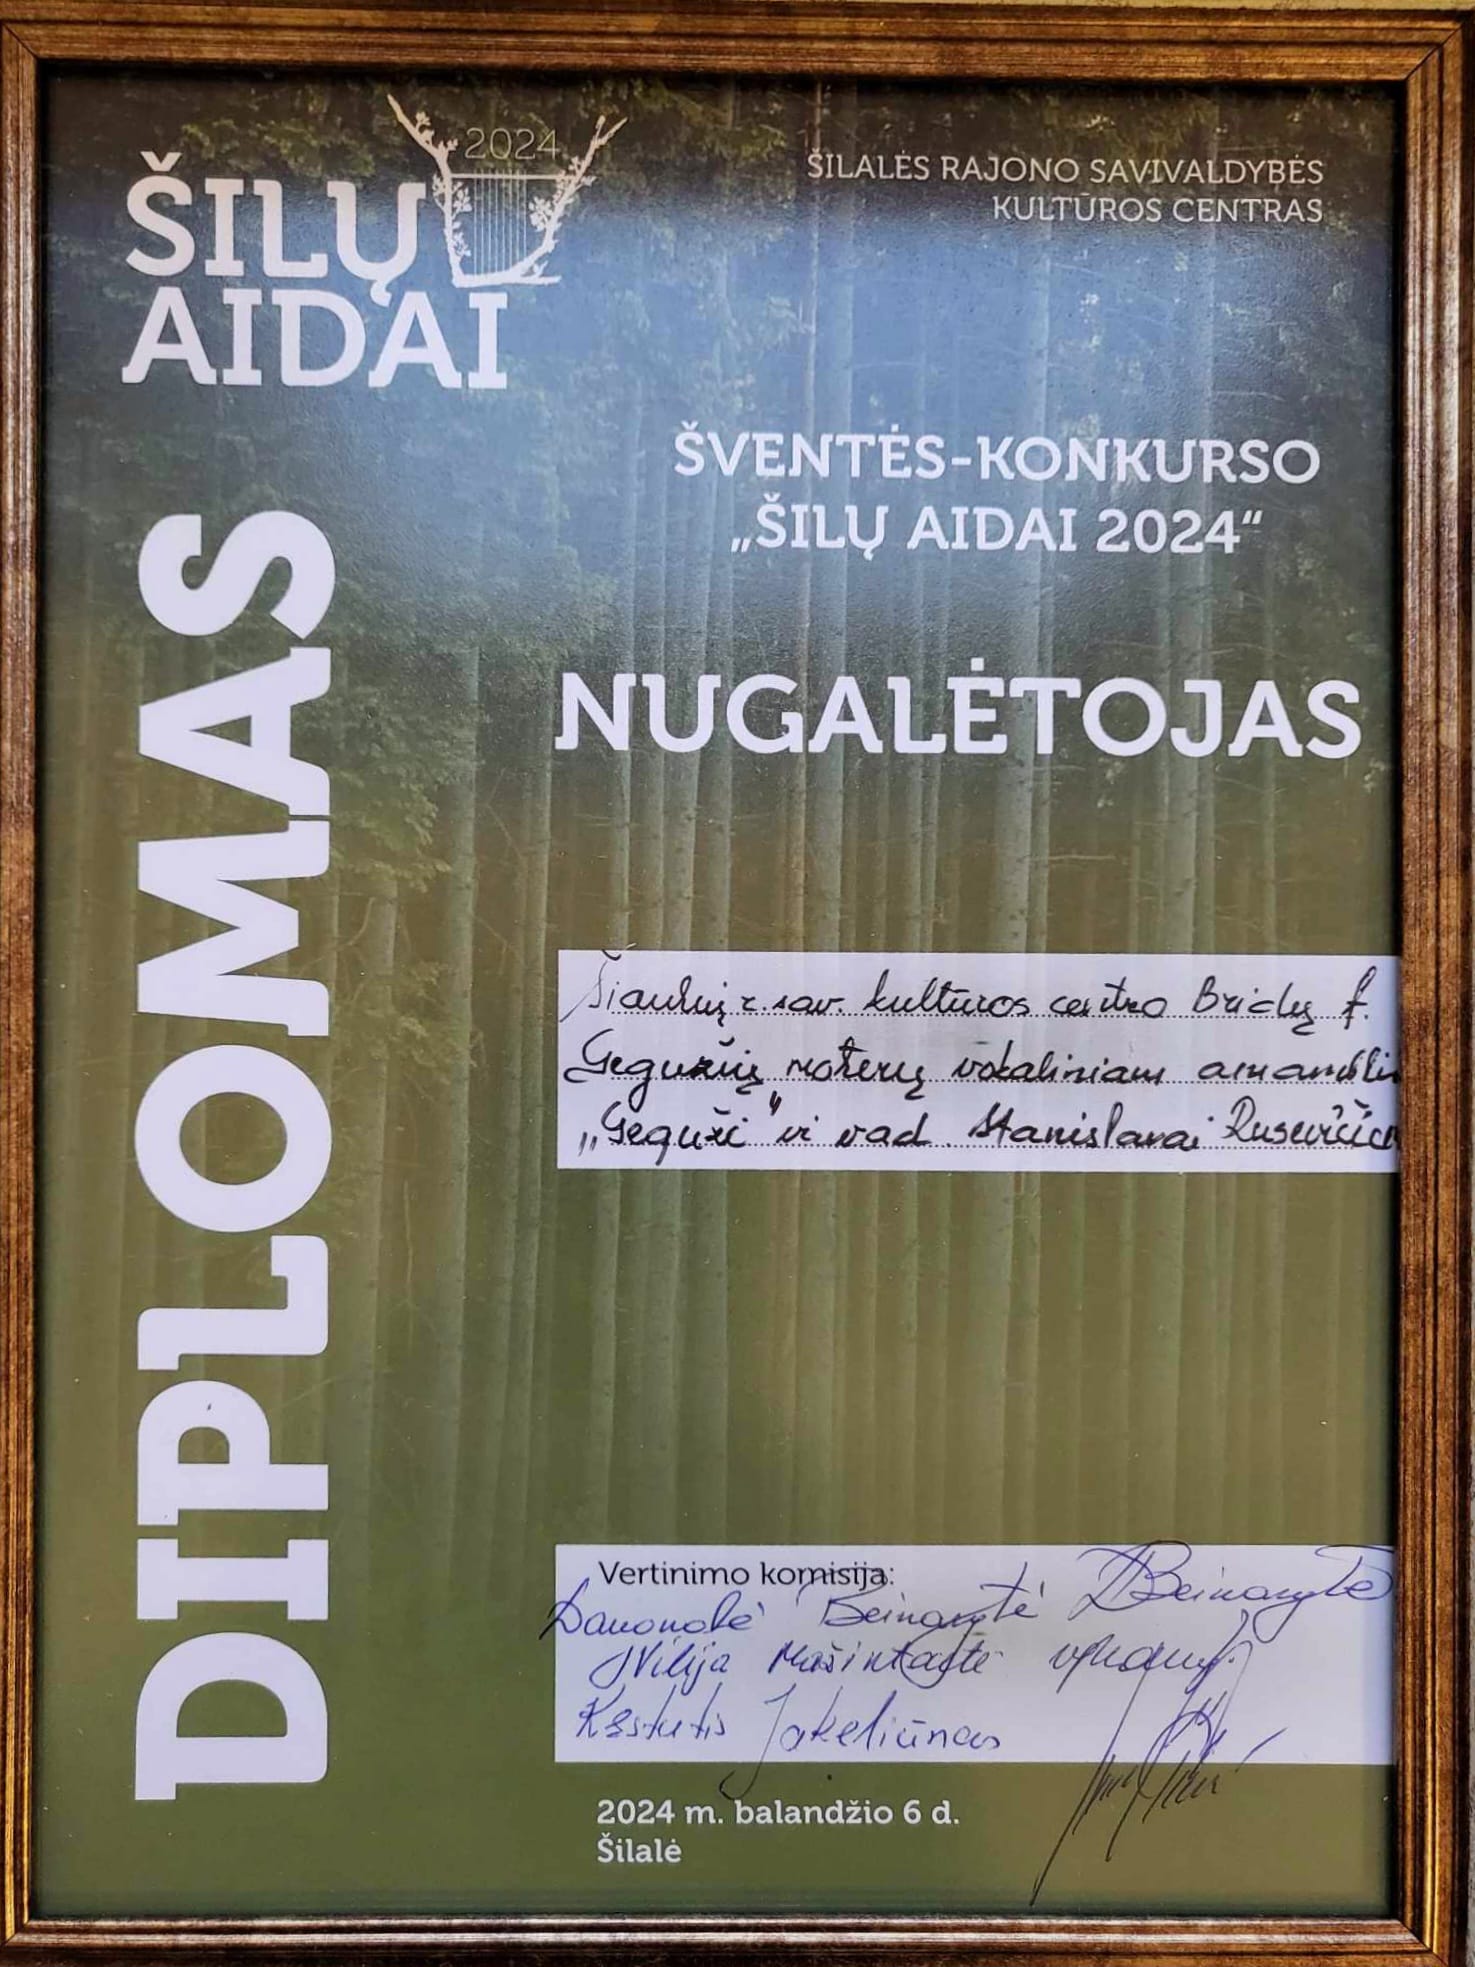 2024
ŠILŲ
AIDAI
ŠILALĖS RAJONO SAVIVALDYBĖS
KULTŪROS CENTRAS
ŠVENTĖS-KONKURSO
„ŠILŲ AIDAI 2024“
NUGALĖTOJAS
DIPLOMAS
Šiaulių r. sav. kultūros centro Bridų f.
Gegužių moterų vokaliniam
„Geguži" ir vad. Stanislavai
Vertinimo komisija:
Danonolė Beinarytė DBeinarytė
Vilija Mašintaitė
Kęstutis Jakeliūnas
2024 m. balandžio 6 d.
Šilalė